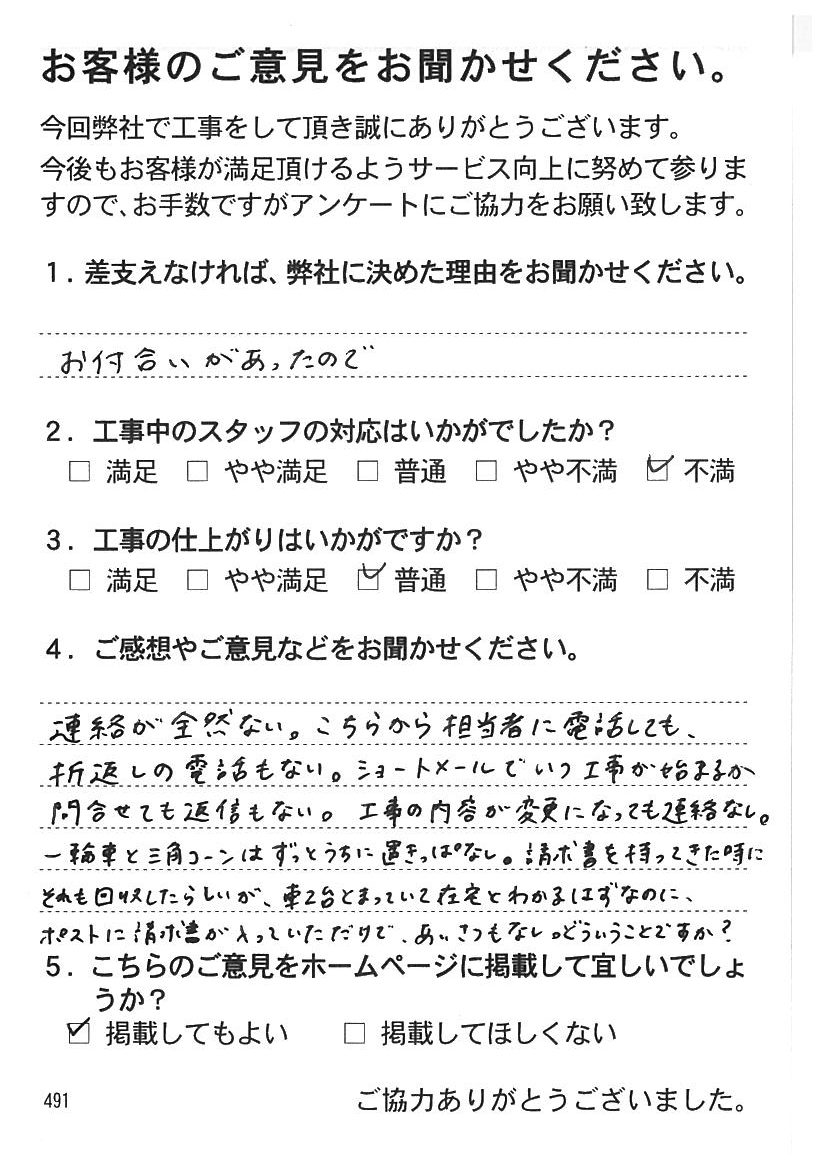 お客様のご意見をお聞かせください。
今回弊社で工事をして頂き誠にありがとうございます。
今後もお客様が満足頂けるようサービス向上に努めて参りま
すので、お手数ですがアンケートにご協力をお願い致します。
1．差支えなければ、弊社に決めた理由をお聞かせください。
お付合いがあったので
2．工事中のスタッフの対応はいかがでしたか？
□ 満足 □ やや満足 □ 普通 □ やや不満 ☑ 不満
3．工事の仕上がりはいかがですか？
□ 満足 □ やや満足 ☑ 普通 □ やや不満 □ 不満
4．ご感想やご意見などをお聞かせください。
連絡が全然ない。こちらから担当者に電話しても、
折返しの電話もない。ショートメールでいつ工事が始まるか
問合せても返信もない。工事の内容が変更になっても連絡なし。
一輪車と三角コーンはずっとうちに置きっぱなし。請求書を持ってきた時に
それも回収したらしいが、車2台とまっていて在宅とわかるはずなのに、
ポストに請求書が入っていただけで、あいさつもなし。どういうことですか？
5．こちらのご意見をホームページに掲載して宜しいでしょ
うか？
☑ 掲載してもよい □ 掲載してほしくない
491 ご協力ありがとうございました。